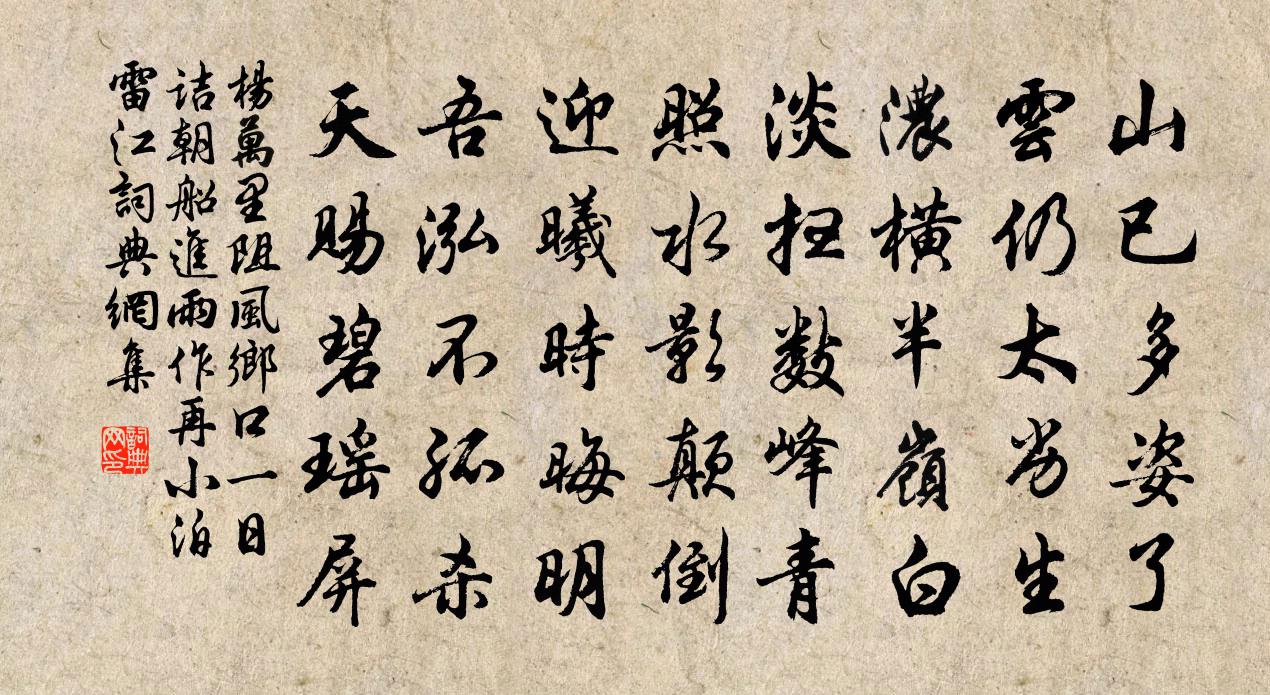 山已多姿了
雲仍太劣生
濃橫半嶺白
淡扫数峰青
照水影顛倒
迎曦時晦明
吾泓不孤杀
天賜碧瑤屏
楊萬里阻風鄉口一日
詰朝船進雨作再小泊
雷江詞典網集
詞典
网印